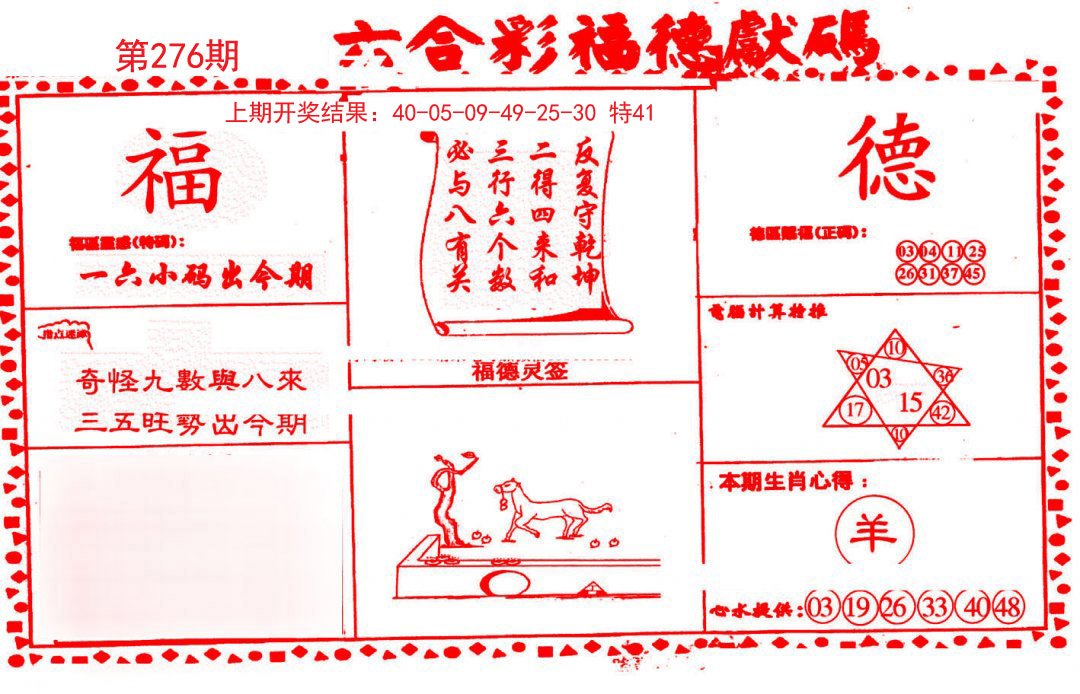 六合彩福德獻碼
第276期
上期开奖结果：40-05-09-49-25-30 特41
福
福區靈感(特碼)：
一六小码出今期
指点迷津
奇怪九數與八來
三五旺勢出今期
反复守乾坤
二得四来和
三行六个数
必与八有关
福德灵签
德
(正碼)：
03 04 11 25
26 31 37 45
電腦計算特推
10
05 03 36
17 15 42
10
本期生肖心得：
羊
心水提供：03 19 26 33 40 48